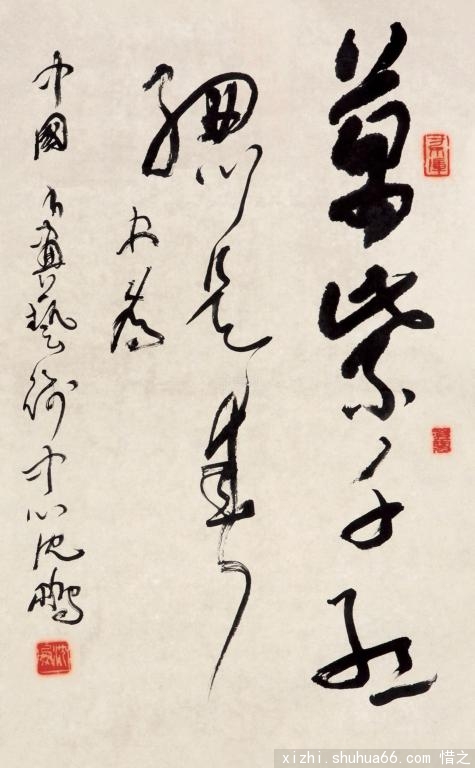 萬紫千紅
總是春
书為
中國书畫藝術中心沈鵬
xizhi.shuhua66.com 惜之